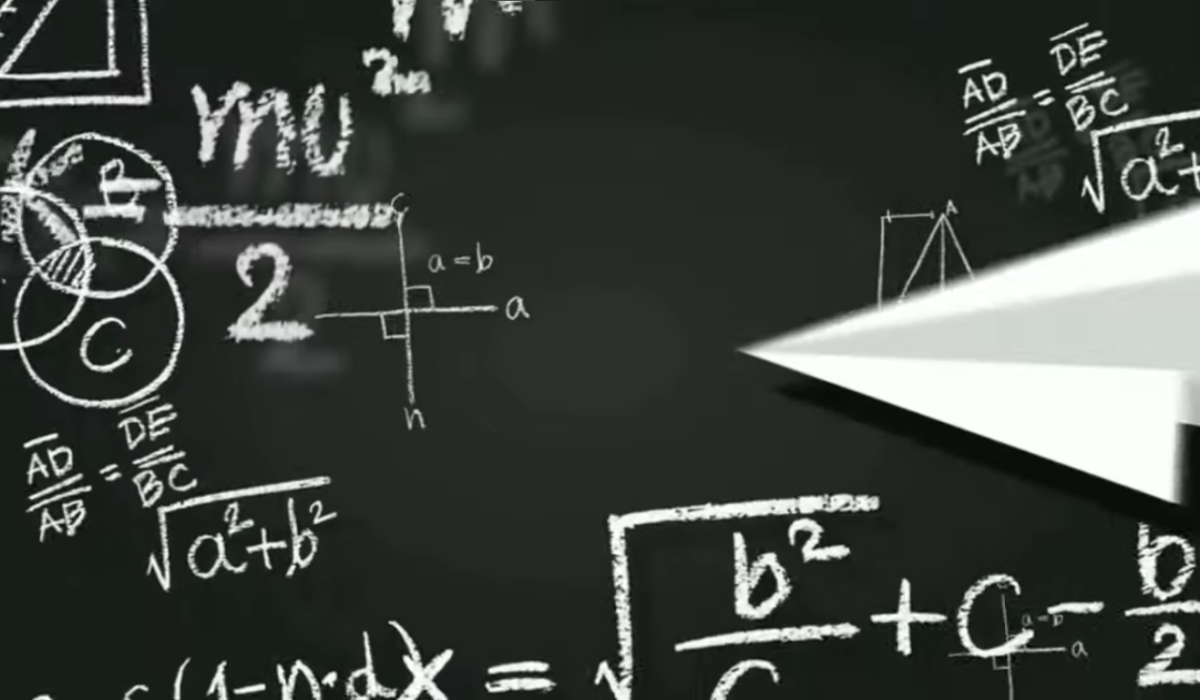 mv²
B
2
C
a = b
a
n
C
AD/AB = DE/BC
√a²+b²
AD/AB = DE/BC
√a²+
A
(1-n·dx = √b²/C + C - b/2
a=b
a